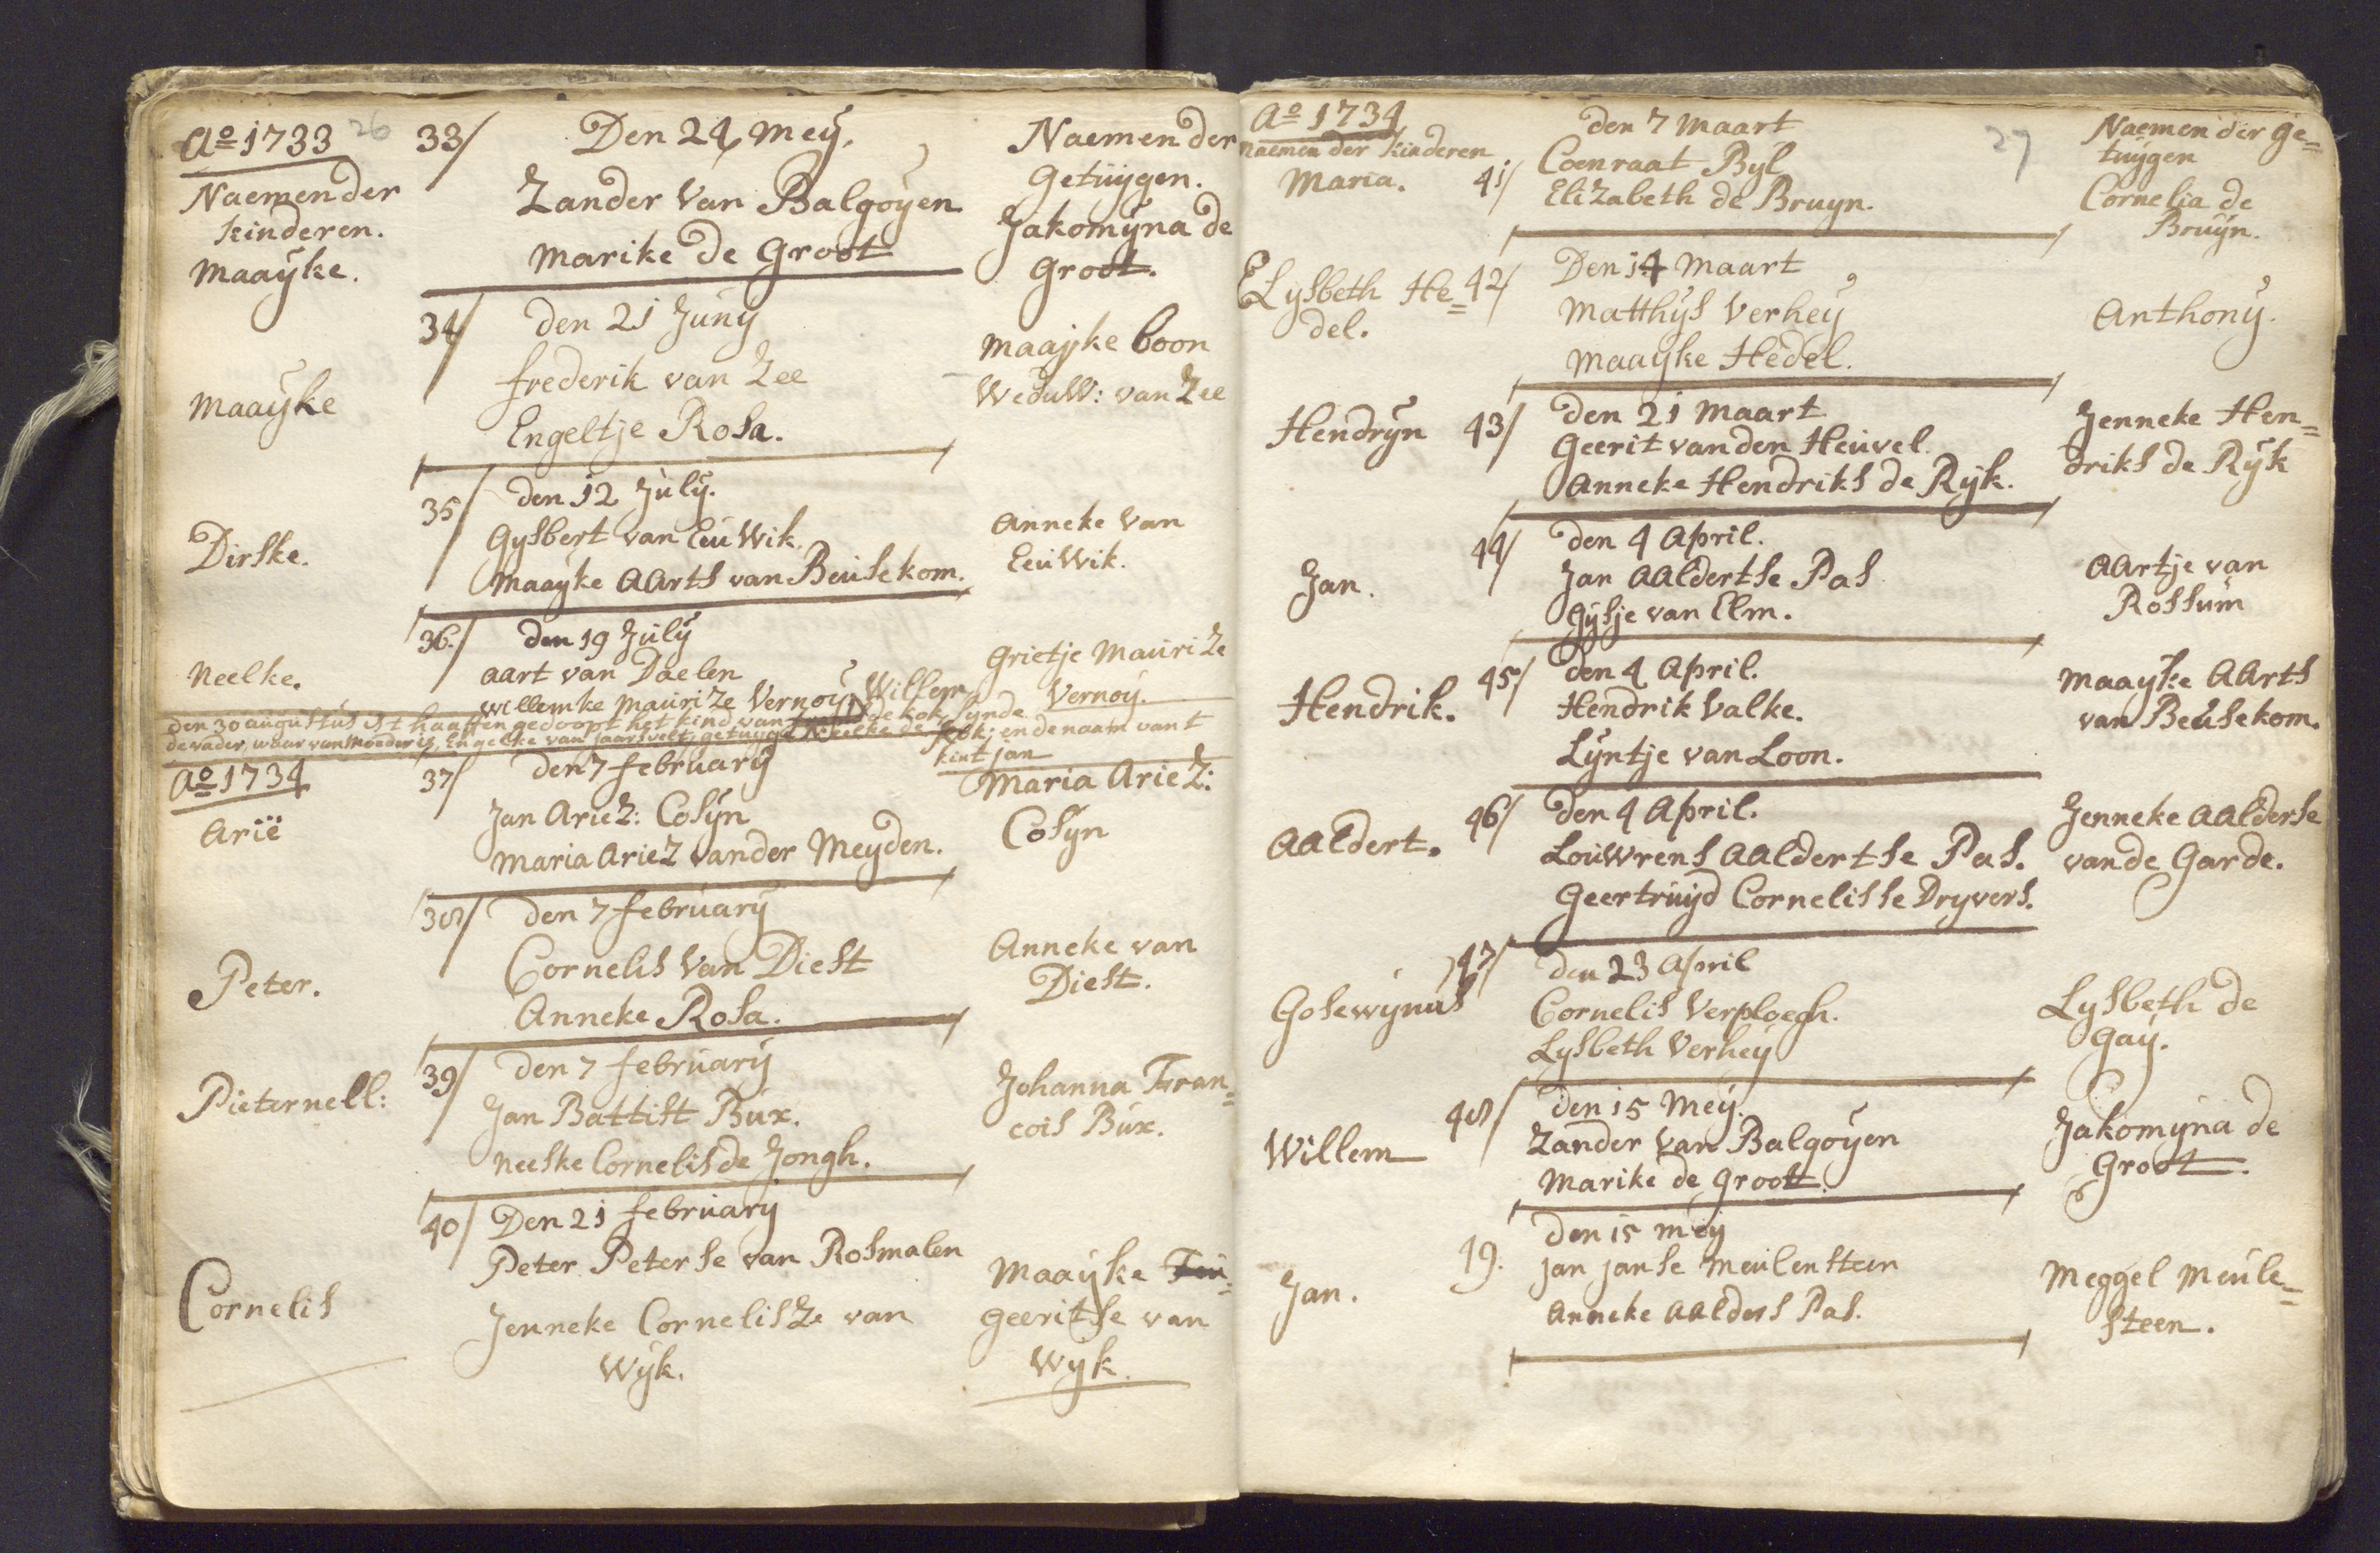 Ao 1733 26
Naemen der
kinderen.
Maaÿke.
33/ Den 24 Meÿ.
Zander Van Balgoÿen
Marike de Groot
Naemen der
Getuÿgen.
Jakomÿna de
Groot.
Maaÿke
34/ den 21 Junÿ
frederik van Zee
Engeltje Rosa.
Maaÿke boon
WeduW: van Zee
Dirske.
35/ den 12 Julÿ.
Gysbert van EuWik.
Maaÿke AArts van Beusekom.
Anneke Van
EeuWik.
Neelke.
36./ den 19 Julÿ
aart van Daelen
Willemke Maurize Vernoÿ
Grietje Maurize
Vernoÿ.
den 30 augustus is t haaften gedoopt het kind van Willem de kok sÿnde
de vader, waar van Moeder is, Engelke van jaarsvelt, getuÿge Neelke de kok: en de naam van t
kint jan
Ao 1734
Arië
37/ den 7 februarÿ
Jan Ariez: Cosÿn
Maria Ariez vander Meyden.
Maria Ariez:
Cosyn
Peter.
38/ den 7 februarÿ
Cornelis Van Diest
Anneke Rosa.
Anneke van
Diest.
Pieternell:
39/ den 7 februarÿ
Jan Battist Bux.
Neeske Cornelis de Jongh.
Johanna Fran=
cois Bux.
Cornelis
40/ Den 21 februarÿ
Peter Peterse van Rosmalen
Jenneke Cornelisze van
Wÿk.
Maaÿke
geeritse van
Wyk.
Ao 1734
Naemen der Kinderen
Maria.
27
den 7 Maart
41/ Coenraat Byl
Elizabeth de Bruyn.
Naemen der ge=
tuÿgen
Cornelia de
Bruÿn.
Elysbeth He=
del.
42/ Den 14 Maart
Matthÿs Verheÿ
Maaÿke Hedel.
Anthonÿ.
Hendrÿn
43/ den 21 Maart
Geerit van den Heuvel.
Anneke Hendriks de Rÿk.
Jenneke Hen=
driks de Rÿk
Jan.
44/ den 4 April.
Jan AAldertse Pas
Gÿsje van Elm.
AArtje van
Rossum
Hendrik.
45/ den 4 April.
Hendrik Valke.
Lÿntje van Loon.
Maaÿke AArts
van Beusekom.
AAldert.
46/ den 4 April.
Louwrens AAldertse Pas.
Geertruÿd Cornelisse Dryvers.
Jenneke AAlderse
vande Garde.
Gosewÿnus
47/ den 23 April
Cornelis Verploegh.
Lysbeth Verheÿ
Lysbeth de
Gaÿ.
Willem
48/ den 15 Meÿ.
Zander Van Balgoÿen
Marike de Groott.
Jakomÿna de
Groot.
Jan.
49. den 15 Meÿ
jan janse Meulensteen
Anneke AAlders Pas.
Meggel Meule=
steen.